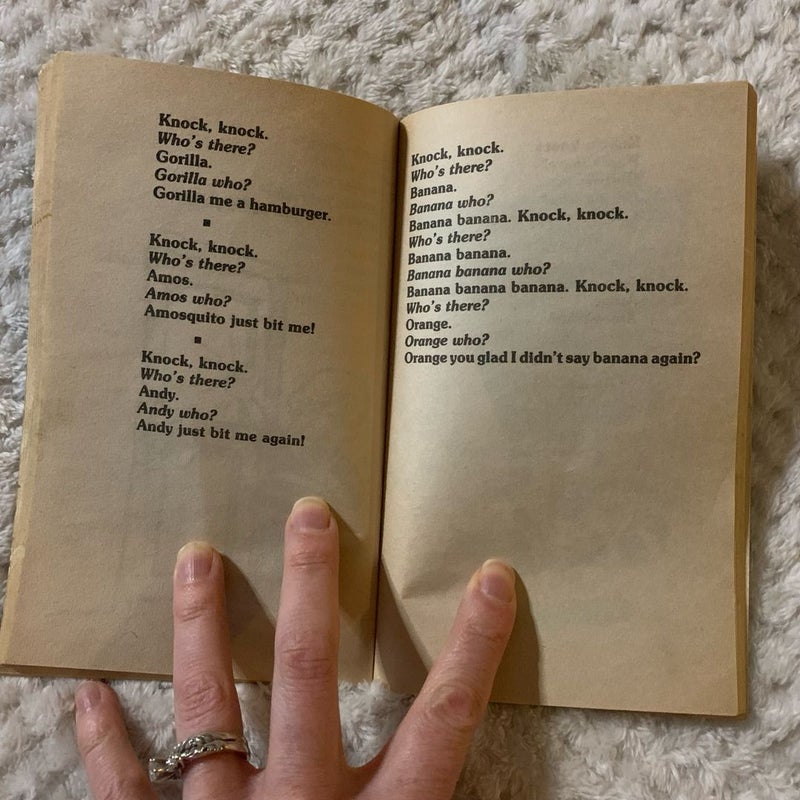 Knock, knock.
Who's there?
Gorilla.
Gorilla who?
Gorilla me a hamburger.
Knock, knock.
Who's there?
Amos.
Amos who?
Amosquito just bit me!
Knock, knock.
Who's there?
Andy.
Andy who?
Andy just bit me again!
Knock, knock.
Who's there?
Banana.
Banana who?
Banana banana. Knock, knock.
Who's there?
Banana banana.
Banana banana who?
Banana banana banana. Knock, knock.
Who's there?
Orange.
Orange who?
Orange you glad I didn't say banana again?